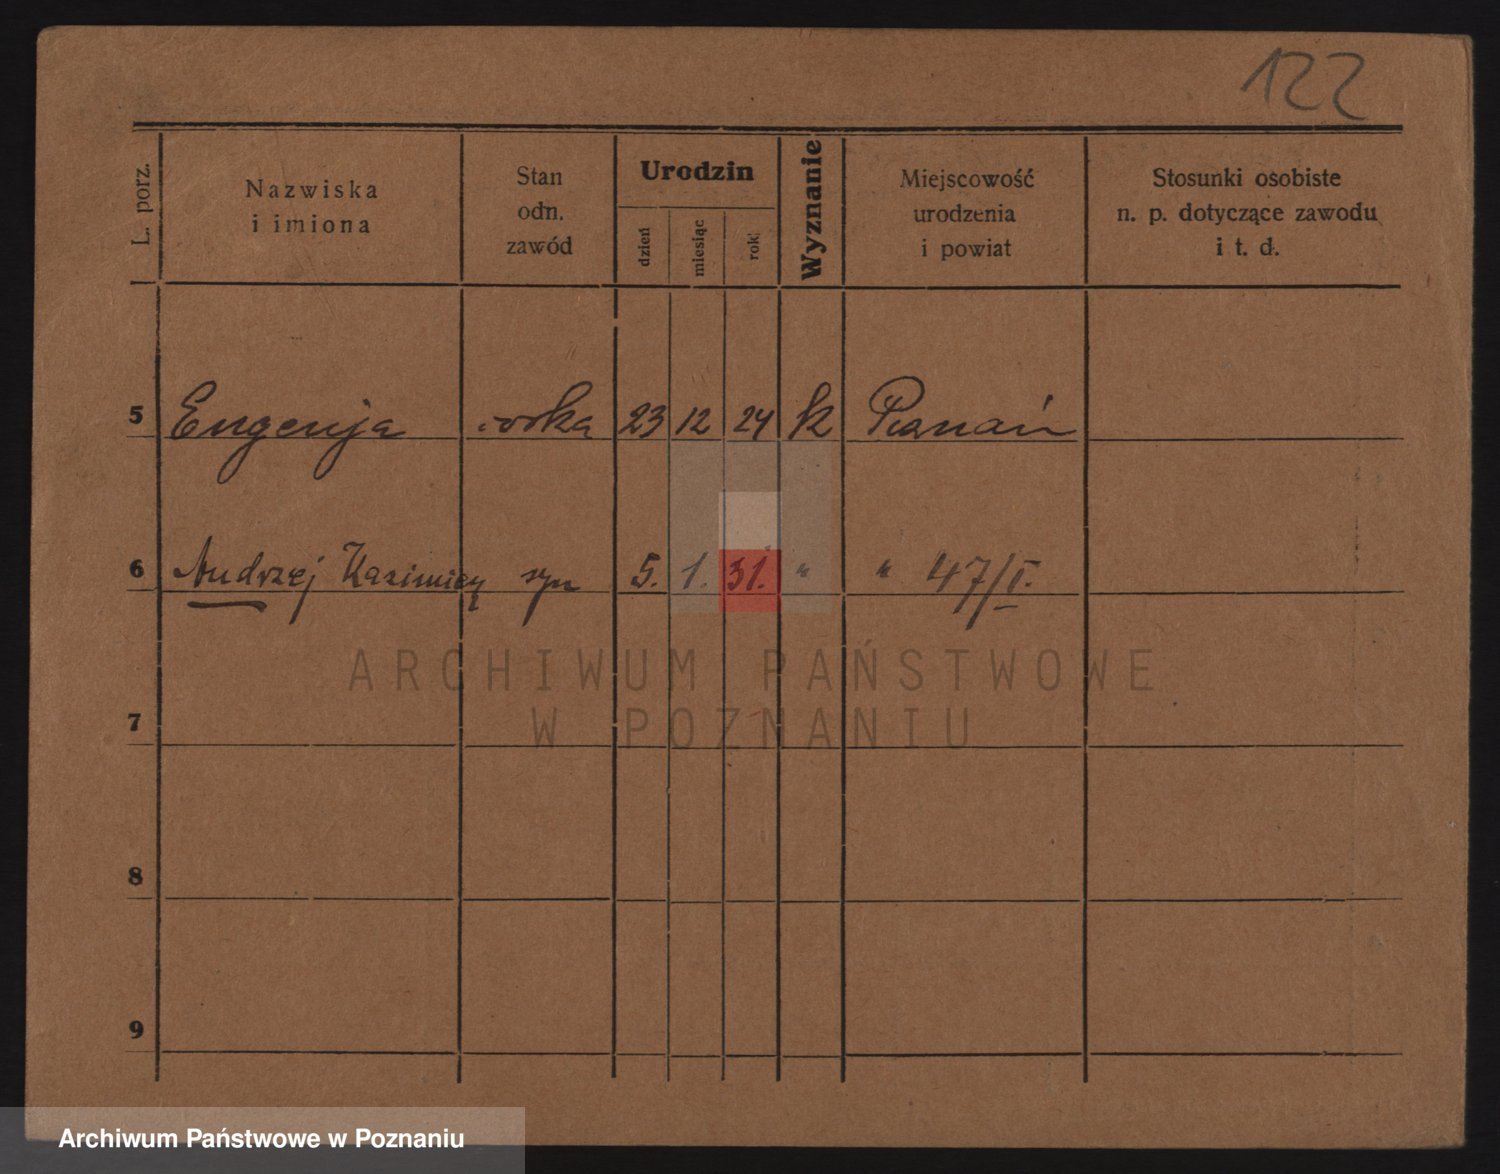 122
L. porz.
Nazwiska
i imiona
Stan
odn.
zawód
Urodzin
dzień
miesiąc
rok
Wyznanie
Miejscowość
urodzenia
i powiat
Stosunki osobiste
n. p. dotyczące zawodu
i t. d.
5 Eugenja córka 23 12 24 k Poznań
6 Andrzej Kazimierz syn 5. 1. 31. " " 47/I.
ARCHIWUM PAŃSTWOWE
W POZNANIU
7
8
9
Archiwum Państwowe w Poznaniu